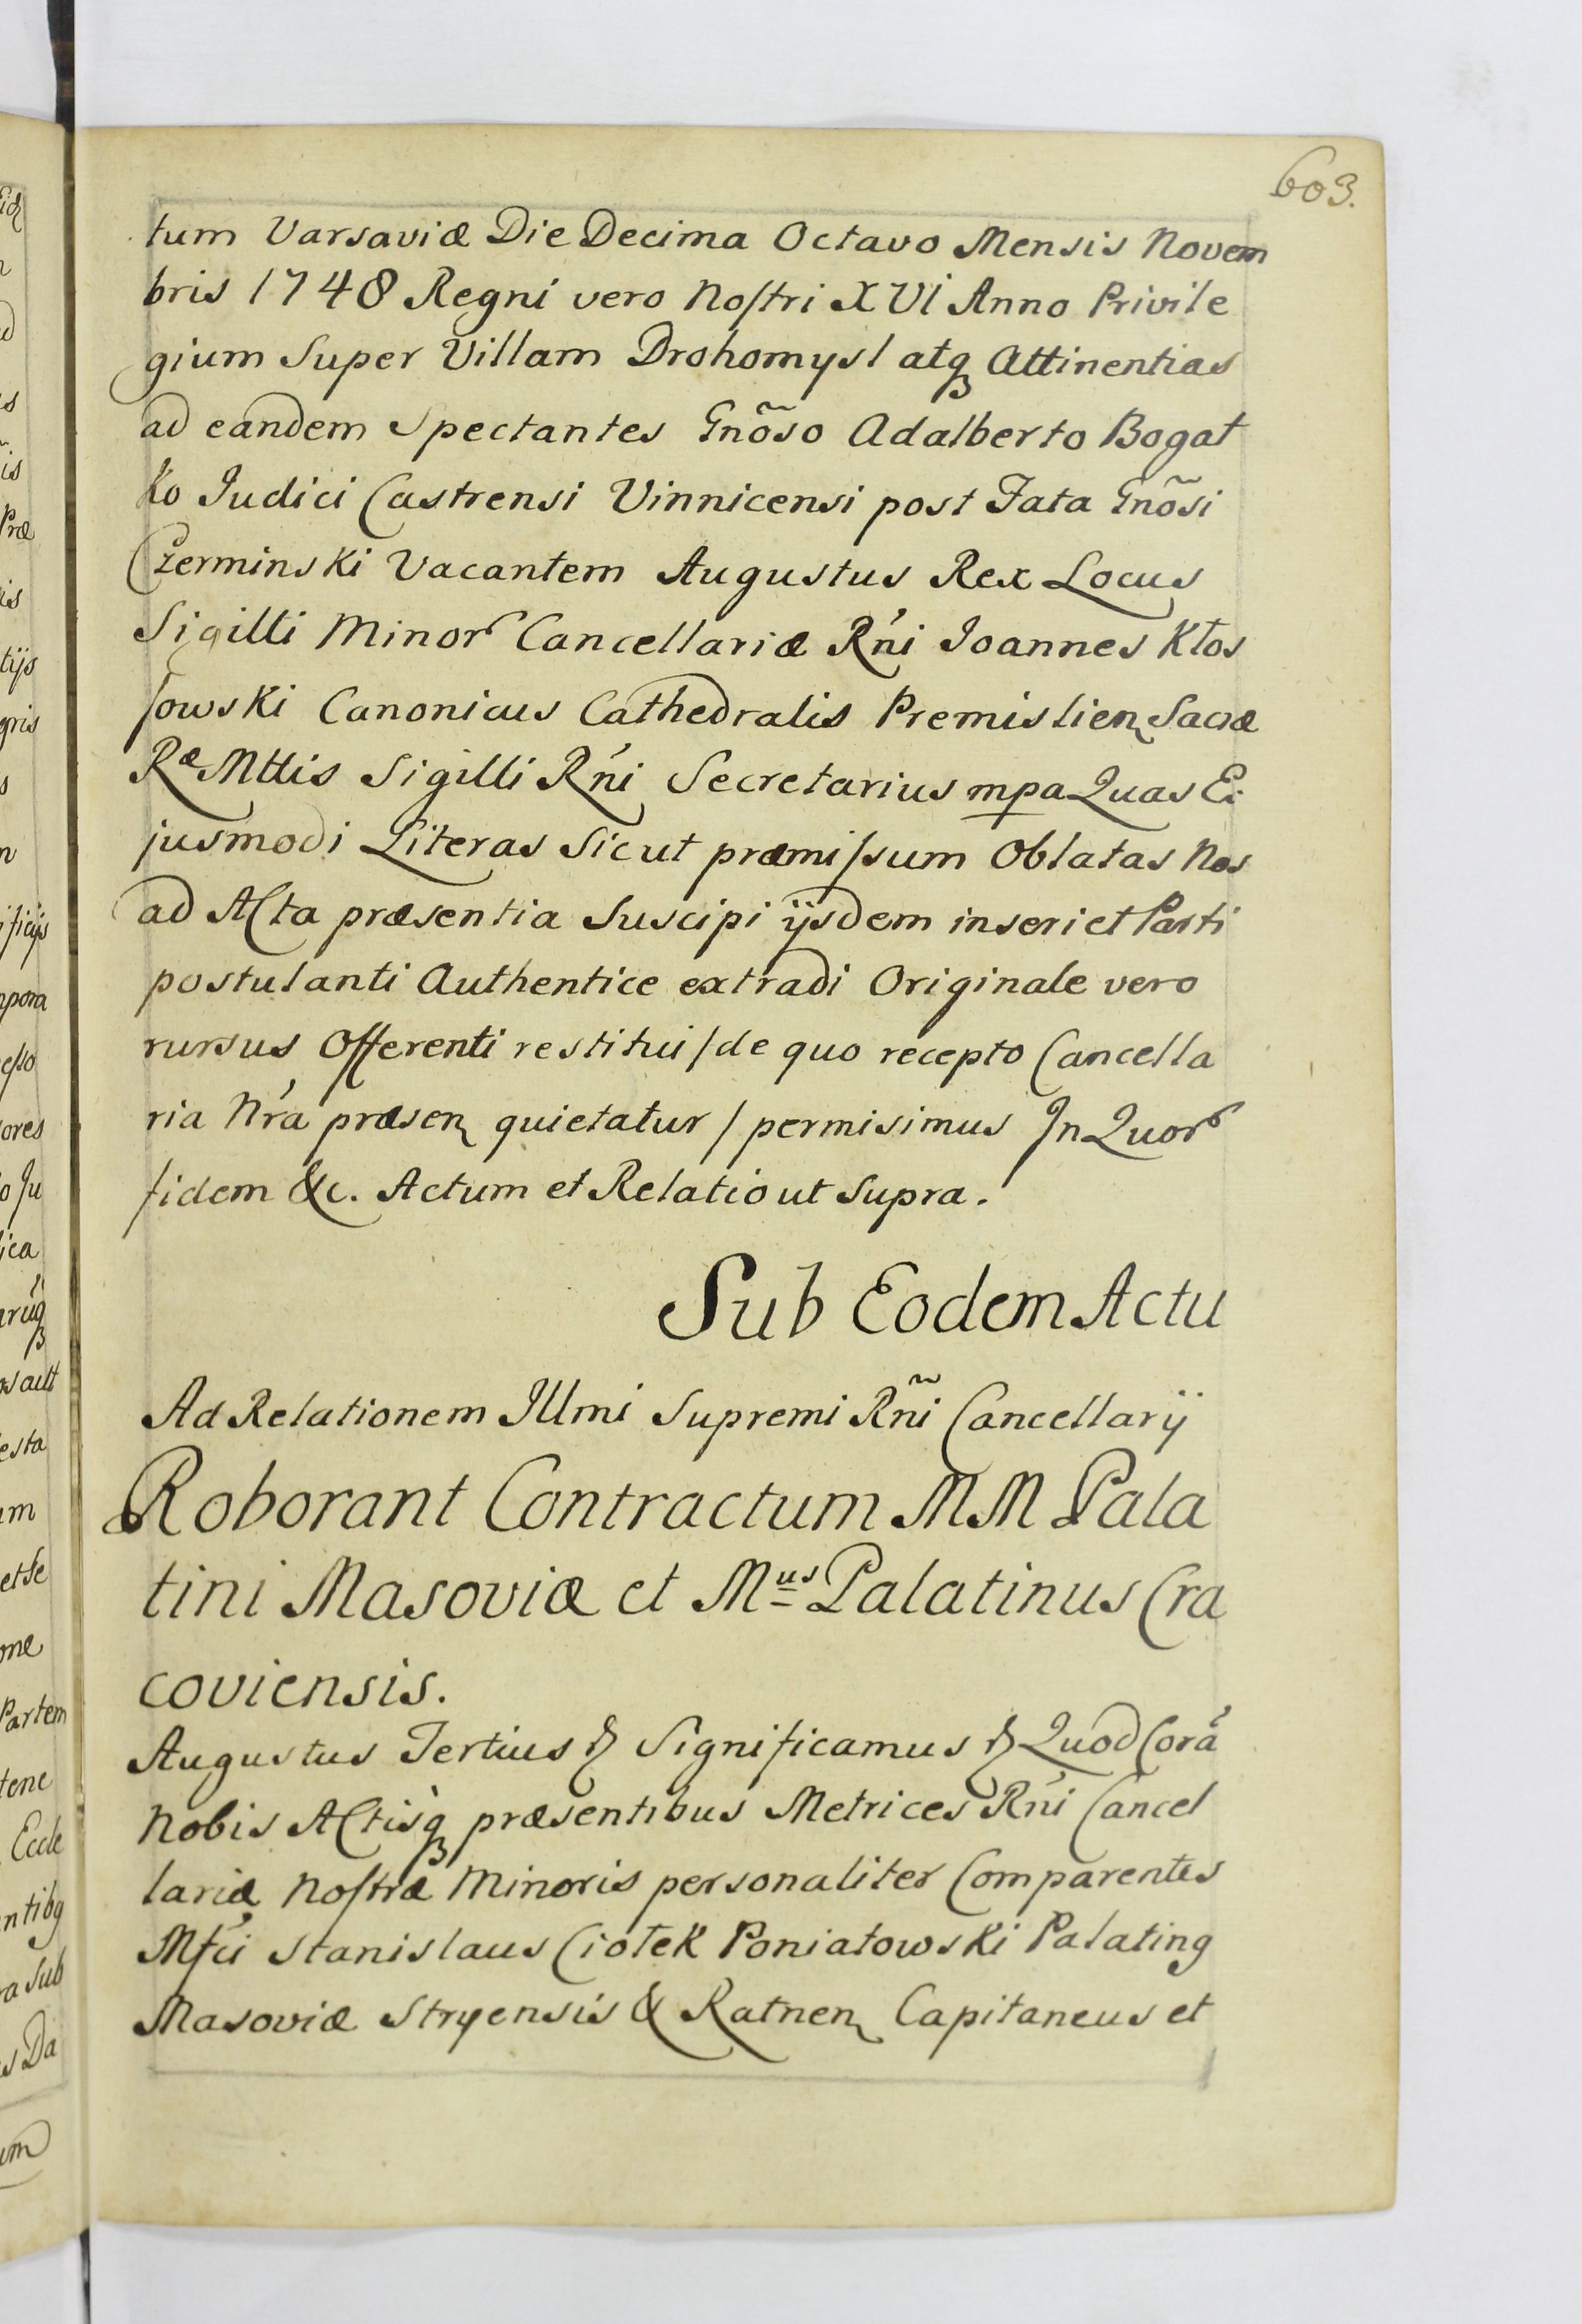 603.
tum Varsaviæ Die Decima Octavo Mensis Novem
bris 1748 Regni vero Nostri XVI Anno Privile
gium Super Villam Drohomysl atq̃ Attinentias
ad eandem Spectantes Gnõso Adalberto Bogat
ko Judici Castrensi Vinnicensi post Fata Gnõsi
Czerminski Vacantem Augustus Rex Locus
Sigilli Minor Cancellariæ Rńi Joannes Kłos
sowski Canonicus Cathedralis Premislien Sacræ
Ræ Mttis Sigilli Rńi Secretarius mpa Quas Ei
jusmodi Literas Sicut præmissum Oblatas Nos
ad Acta præsentia Suscipi ijsdem inseri et Parti
postulanti Authentice extradi Originale vero
rursus Offerenti restitui / de quo recepto Cancella
ria Nŕa præsen quietatur / permisimus In Quor
fidem &c. Actum et Relatio ut Supra.
Sub Eodem Actu
Ad Relationem Illmi Supremi Rñi Cancellarij
Roborant Contractum MM Pala
tini Masoviæ et Mus Palatinus Cra
coviensis.
Augustus Tertius & Significamus & Quod Corá
Nobis Actisq̃ præsentibus Metrices Rńi Cancel
lariæ Nostræ Minoris personaliter Comparentes
Mfći Stanislaus Ciołek Poniatowski Palatinꝯ
Masoviæ Stryensis & Ratnen Capitaneus et